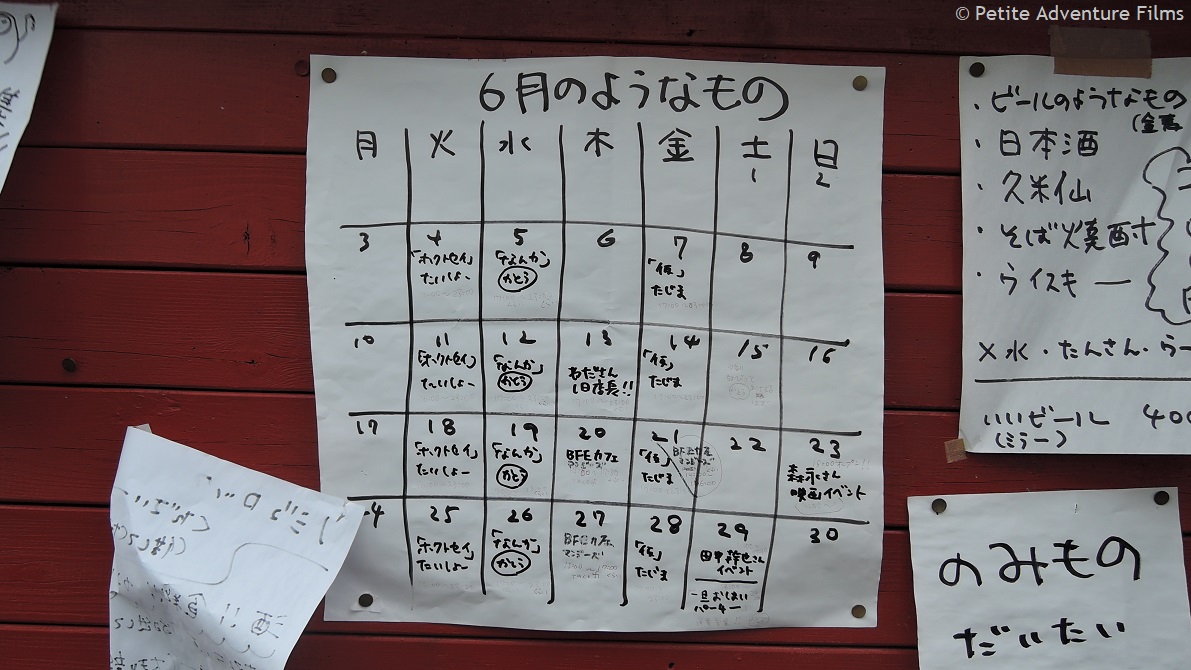 © Petite Adventure Films
6月のようなもの
月 火 水 木 金 土 日
1 2
3 4 5 6 7 8 9
「ホクトセイ」 「なんか」 「仮」
たいしょー かとう たじま
10 11 12 13 14 15 16
「ホクトセイ」 「なんか」 わださん 「仮」
たいしょー かとう 1日店長!! たじま
17 18 19 20 21 22 23
「ホクトセイ」 「なんか」 BFEカフェ 「仮」 BFEカフェ
たいしょー かとう たじま 森永さん
映画イベント
24 25 26 27 28 29 30
「ホクトセイ」 「なんか」 BFEカフェ 「仮」 さん
たいしょー かとう たじま イベント
一旦おしまい
パーティー
・ビールのようなもの
・日本酒
・久米仙
・そば焼酎
・ウイスキー
×水・たんさん・ウー
いいビール 400
(ミラー)
のみもの
だいたい